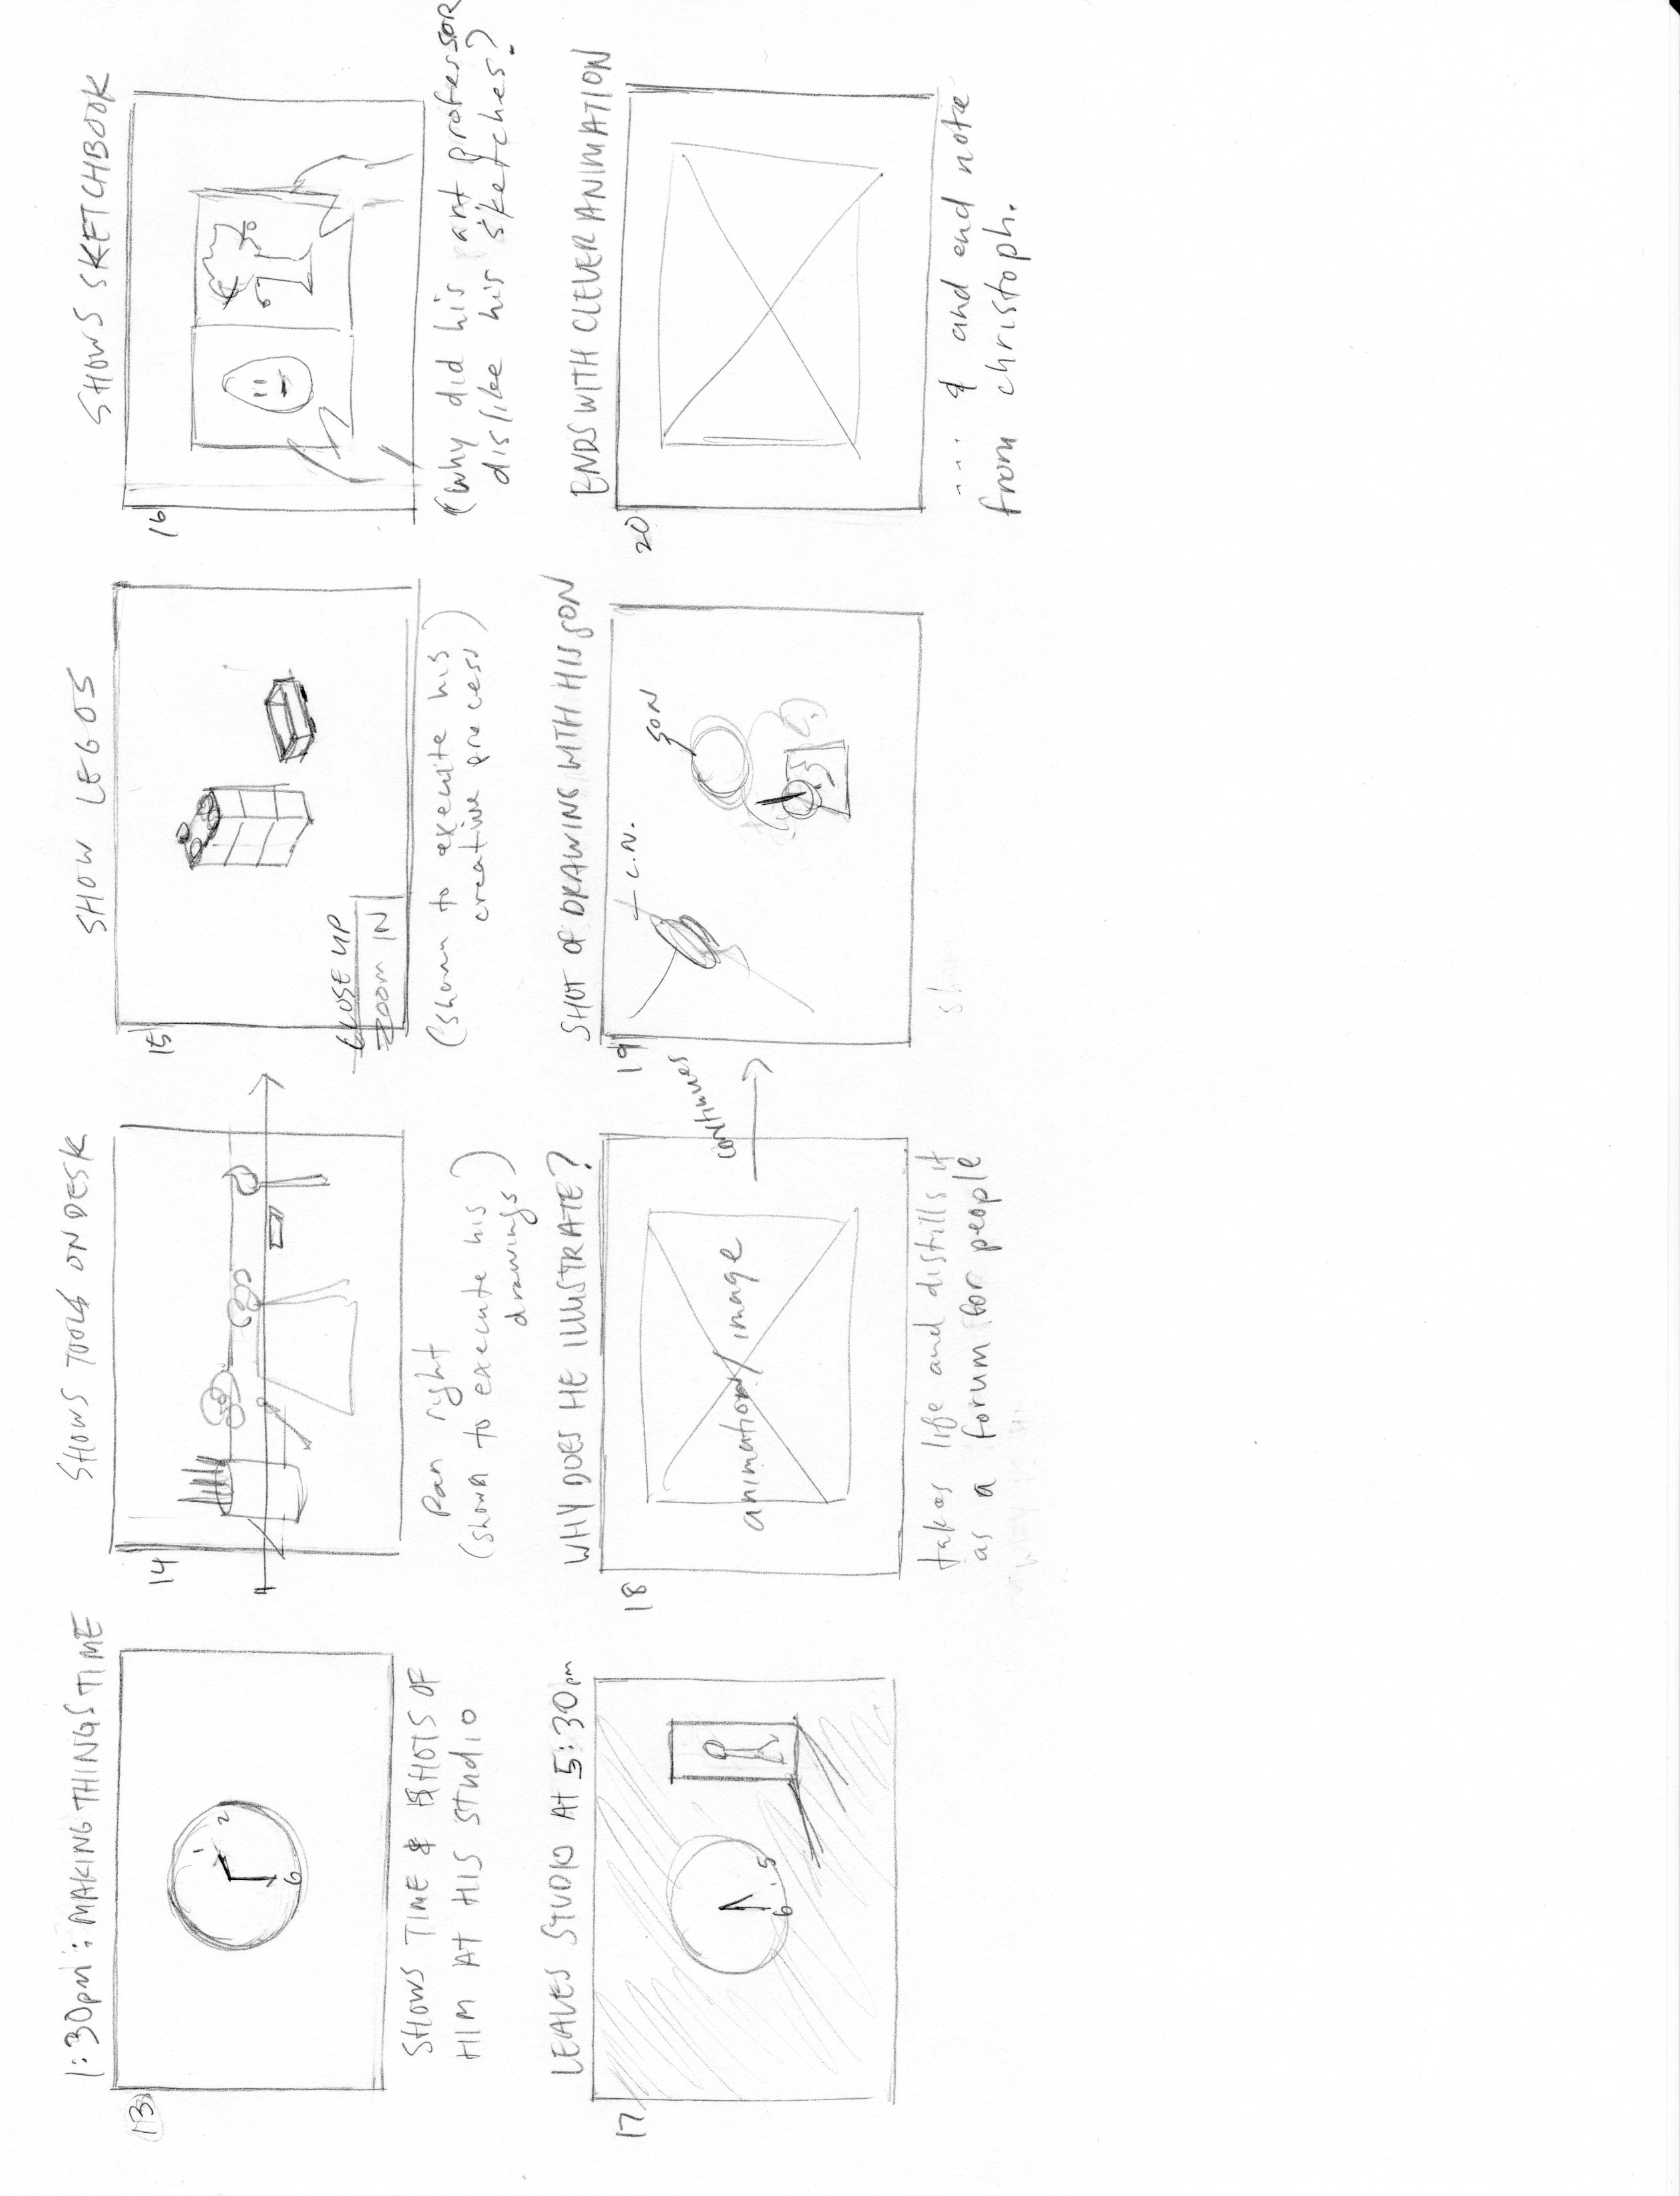 1:30pm: MAKING THINGS TIME
13
1
2
6
SHOWS TIME & SHOTS OF
HIM AT HIS STUDIO
SHOWS TOOLS ON DESK
14
Pan right
(shown to execute his
drawings)
SHOW LEGOS
15
CLOSE UP
ZOOM IN
(shown to execute his
creative process)
SHOWS SKETCHBOOK
16
(why did his art professor
dislike his sketches?
LEAVES STUDIO AT 5:30pm
17
6
5
WHY DOES HE ILLUSTRATE?
18
animation/image
continues
takes life and distills it
as a forum for people
SHOT OF DRAWING WITH HIS SON
19
C.N.
SON
ENDS WITH CLEVER ANIMATION
20
... & and end note
from christoph.